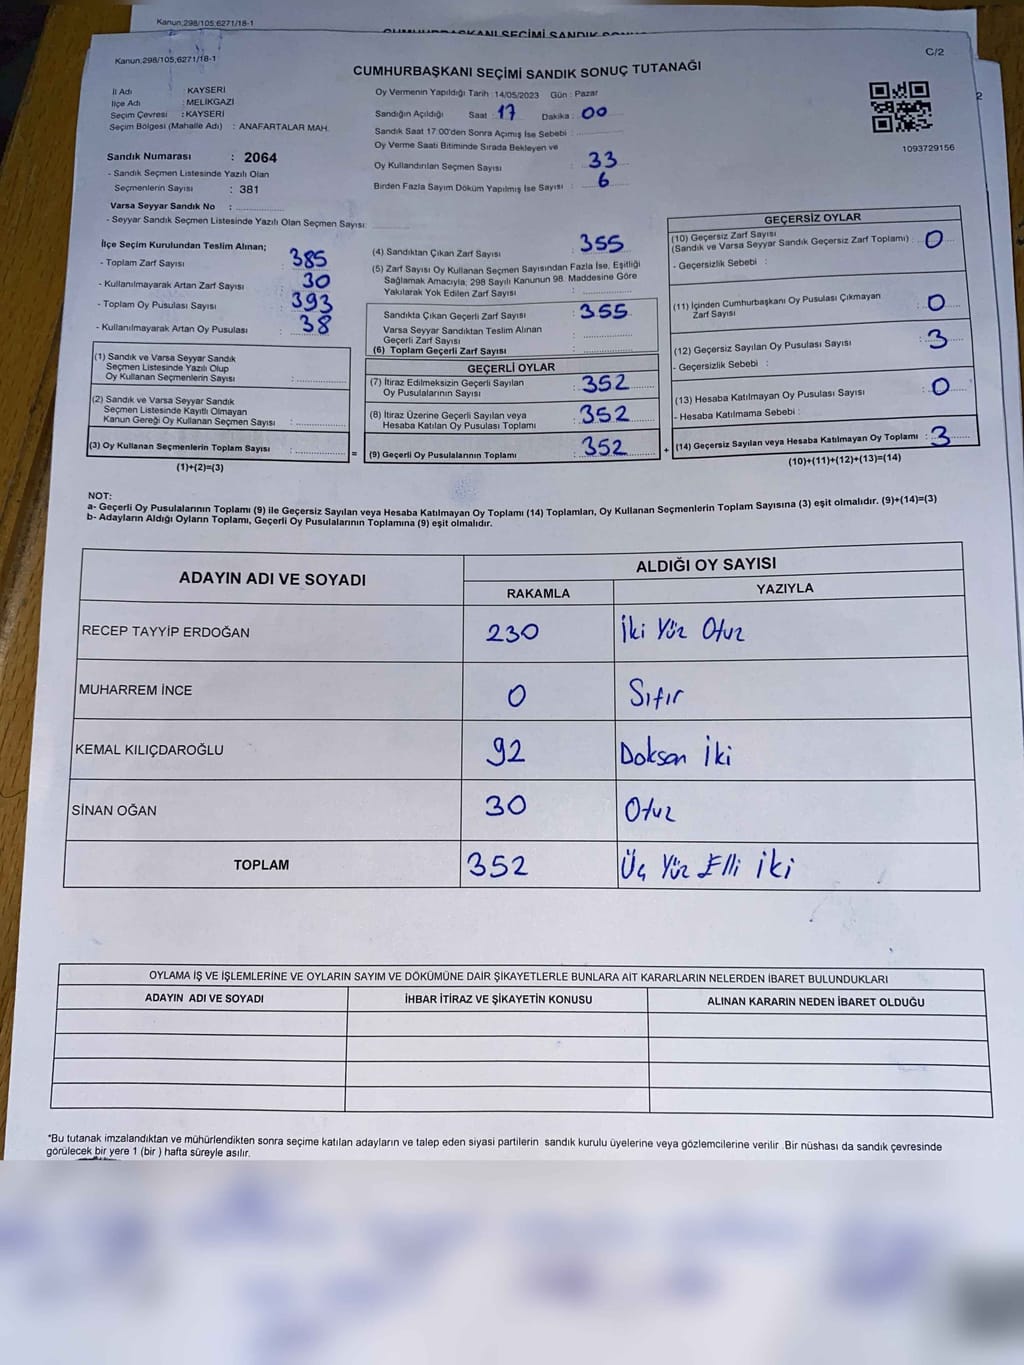 Kanun;298/105,6271/18-1
Kanun;298/105,6271/18-1
C/2
CUMHURBAŞKANI SEÇİMİ SANDIK SONUÇ TUTANAĞI
İl Adı : KAYSERİ
İlçe Adı : MELİKGAZİ
Seçim Çevresi : KAYSERİ
Seçim Bölgesi (Mahalle Adı) : ANAFARTALAR MAH.
Sandık Numarası : 2064
- Sandık Seçmen Listesinde Yazılı Olan
Seçmenlerin Sayısı : 381
Varsa Seyyar Sandık No :
- Seyyar Sandık Seçmen Listesinde Yazılı Olan Seçmen Sayısı:
Oy Vermenin Yapıldığı Tarih :14/05/2023 Gün : Pazar
Sandığın Açıldığı Saat : 17 Dakika : 00
Sandık Saat 17:00'den Sonra Açımış İse Sebebi :
Oy Verme Saati Bitiminde Sırada Bekleyen ve
Oy Kullandırılan Seçmen Sayısı : 33
Birden Fazla Sayım Döküm Yapılmış İse Sayısı : 6
1093729156
İlçe Seçim Kurulundan Teslim Alınan;
- Toplam Zarf Sayısı : 385
- Kullanılmayarak Artan Zarf Sayısı : 30
- Toplam Oy Pusulası Sayısı : 393
- Kullanılmayarak Artan Oy Pusulası : 38
(1) Sandık ve Varsa Seyyar Sandık
Seçmen Listesinde Yazılı Olup
Oy Kullanan Seçmenlerin Sayısı :
(2) Sandık ve Varsa Seyyar Sandık
Seçmen Listesinde Kayıtlı Olmayan
Kanun Gereği Oy Kullanan Seçmen Sayısı :
(3) Oy Kullanan Seçmenlerin Toplam Sayısı : =
(1)+(2)=(3)
(4) Sandıktan Çıkan Zarf Sayısı : 355
(5) Zarf Sayısı Oy Kullanan Seçmen Sayısından Fazla İse, Eşitliği
Sağlamak Amacıyla; 298 Sayılı Kanunun 98. Maddesine Göre
Yakılarak Yok Edilen Zarf Sayısı :
Sandıkta Çıkan Geçerli Zarf Sayısı : 355
Varsa Seyyar Sandıktan Teslim Alınan
Geçerli Zarf Sayısı :
(6) Toplam Geçerli Zarf Sayısı :
GEÇERLİ OYLAR
(7) İtiraz Edilmeksizin Geçerli Sayılan
Oy Pusulasının Sayısı : 352
(8) İtiraz Üzerine Geçerli Sayılan veya
Hesaba Katılan Oy Pusulası Toplamı : 352
(9) Geçerli Oy Pusulalarının Toplamı : 352 +
GEÇERSİZ OYLAR
(10) Geçersiz Zarf Sayısı
(Sandık ve Varsa Seyyar Sandık Geçersiz Zarf Toplamı) : 0
- Geçersizlik Sebebi :
(11) İçinden Cumhurbaşkanı Oy Pusulası Çıkmayan
Zarf Sayısı : 0
(12) Geçersiz Sayılan Oy Pusulası Sayısı : 3
- Geçersizlik Sebebi :
(13) Hesaba Katılmayan Oy Pusulası Sayısı : 0
- Hesaba Katılmama Sebebi :
(14) Geçersiz Sayılan veya Hesaba Katılmayan Oy Toplamı : 3
(10)+(11)+(12)+(13)=(14)
NOT:
a- Geçerli Oy Pusulalarının Toplamı (9) ile Geçersiz Sayılan veya Hesaba Katılmayan Oy Toplamı (14) Toplamları, Oy Kullanan Seçmenlerin Toplam Sayısına (3) eşit olmalıdır. (9)+(14)=(3)
b- Adayların Aldığı Oyların Toplamı, Geçerli Oy Pusulalarının Toplamına (9) eşit olmalıdır.
ADAYIN ADI VE SOYADI
ALDIĞI OY SAYISI
RAKAMLA YAZIYLA
RECEP TAYYİP ERDOĞAN 230 İki Yüz Otuz
MUHARREM İNCE 0 Sıfır
KEMAL KILIÇDAROĞLU 92 Doksan İki
SİNAN OĞAN 30 Otuz
TOPLAM 352 Üç Yüz Elli İki
OYLAMA İŞ VE İŞLEMLERİNE VE OYLARIN SAYIM VE DÖKÜMÜNE DAİR ŞİKAYETLERLE BUNLARA AİT KARARLARIN NELERDEN İBARET BULUNDUKLARI
ADAYIN ADI VE SOYADI İHBAR İTİRAZ VE ŞİKAYETİN KONUSU ALINAN KARARIN NEDEN İBARET OLDUĞU
*Bu tutanak imzalandıktan ve mühürlendikten sonra seçime katılan adayların ve talep eden siyasi partilerin sandık kurulu üyelerine veya gözlemcilerine verilir .Bir nüshası da sandık çevresinde
görülecek bir yere 1 (bir ) hafta süreyle asılır.